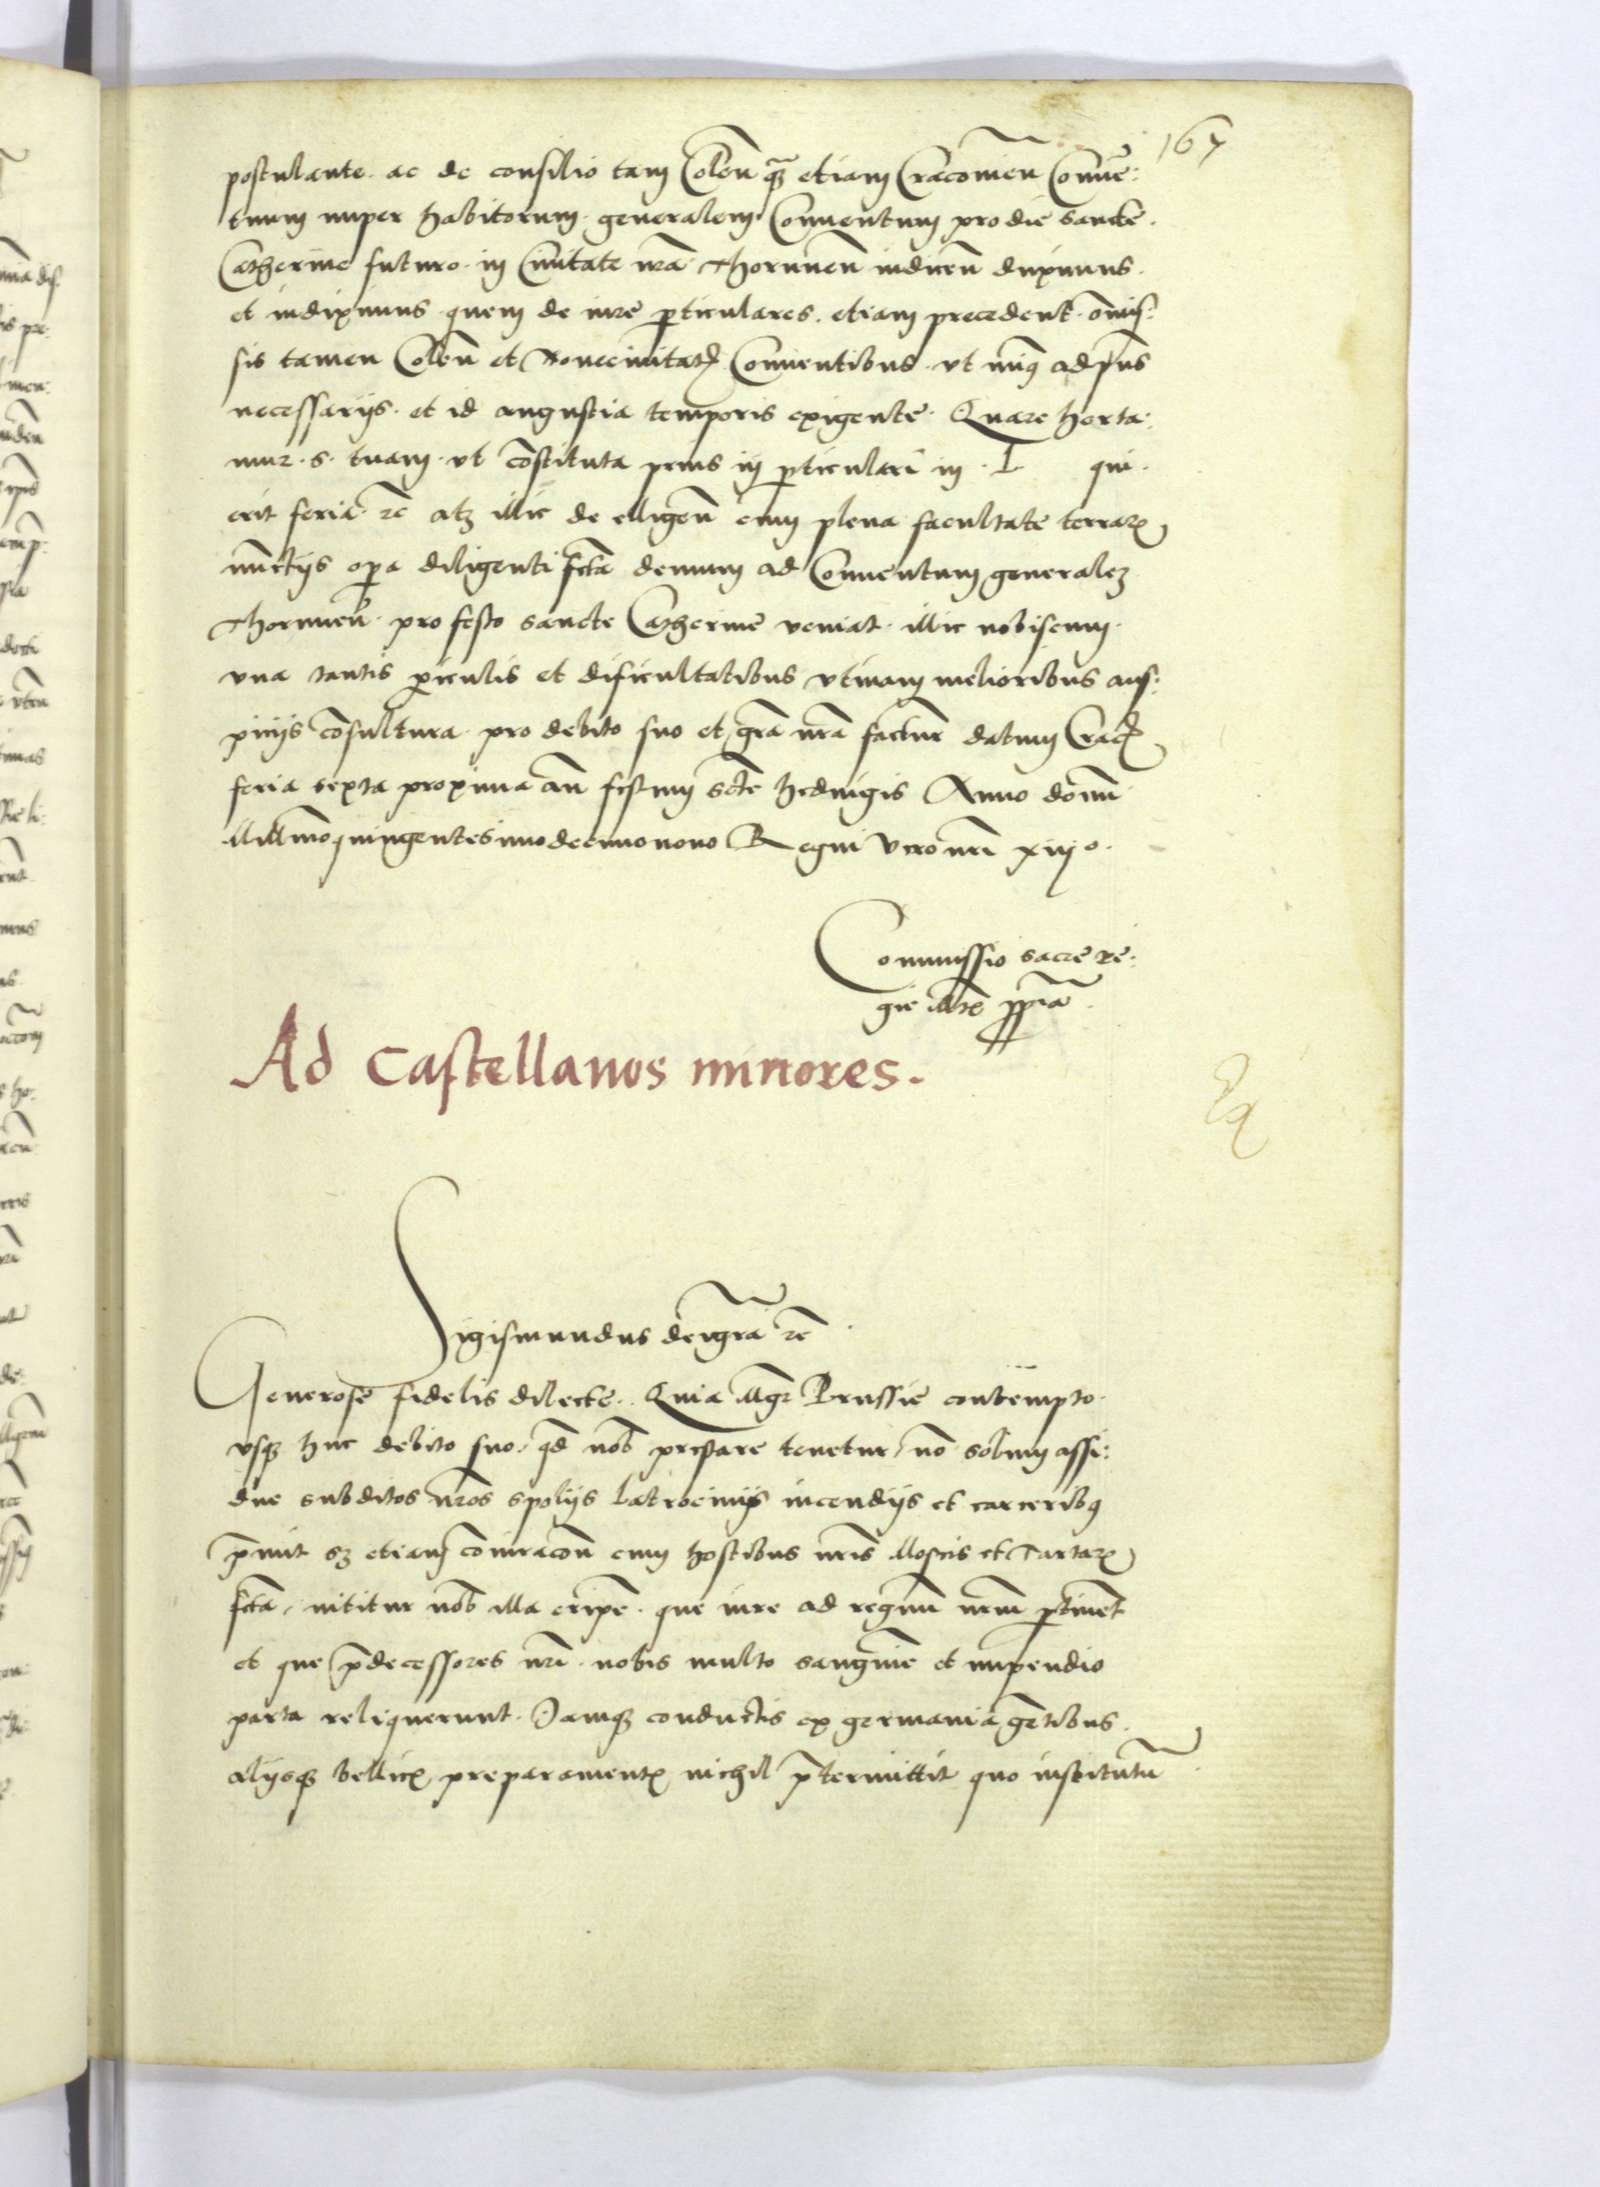 167
postulante. ac de consilio tam Colen̄ q̄ etiam Cracovien̄ Conuē:
tuum nuper habitorum. generalem Conuentum pro die sancte.
Catherine futuro. in Ciuitate nr̄a Thorunen̄ indicen̄ duximus.
et indiximus. quem de iure p̄ticulares. etiam precedent. omis:
sis tamen Colen̄ et Nouecivitat̄ Conuentibus. vt minꝰ ad p̄ns
necessarijs. et id angustia temporis exigente. Quare horta:
mur. s. tuam. vt cōstituta prius in p̄ticulari in. L qui.
erit feria. zc̄ atꝫ illic de elligen̄ cum plena facultate terrarꝫ
nūctijs opa diligenti fcta demum ad Conuentum generaleꝫ
Thorunen̄. pro festo sancte Catherine veniat. illic nobiscum.
vna tantis p̄iculis et dificultatibus vtinam melioribus aus:
picijs cōsultura. pro debito suo et grā nrā factur̄ datum Crac̄
feria sexta proxima an̄ festum scte hedwigis Anno domī
Millmo quingentesimodecimonono Regni Vero nrī xiijo.
Commissio sacre re:
gie Mtis pp̄ria.
Ad Castellanos minores.
Sigismundus dei grā zc̄.
Generose fidelis dilecte. Quia Mgr̄ Prussie contempto.
vsqꝫ huc debito suo. qd̄ nob̄ prestare tenetur, nō solum assi:
due subditos nros spolijs latrocinijs incendijs et carceribꝰ
p̄mit sꝫ etiam cōiuracōn cum hostibus nrīs Moscis et Tartarꝫ
fcta, nititur nob̄ illa erip̄e. que iure ad regnū nrm̄ p̄tinet
et que p̄decessores nrī. nobis multo sanguine et impendio
parta reliquerunt. Jamqꝫ conductis ex germania gētibus.
alijsqꝫ bellicꝫ preparamentꝫ nichil p̄termittit quo institutū